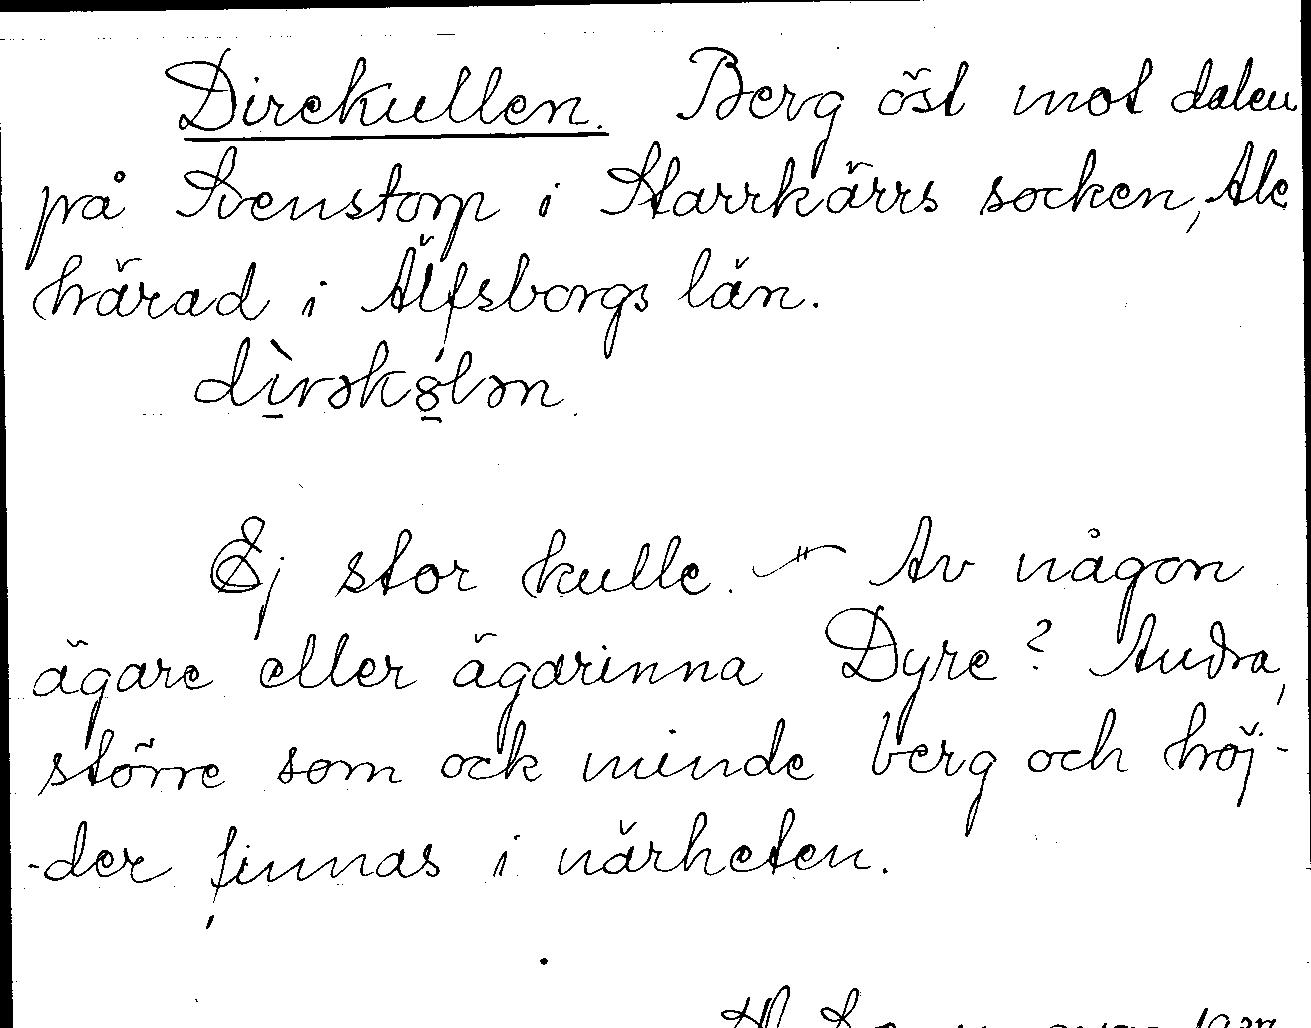 Direkullen. Berg öst mot dalen
på Svenstorp i Starrkärrs socken, Ale
härad i Älfsborgs län.
dìrəkålən
Ej stor kulle. — Av någon
ägare eller ägarinna Dyre? Andra,
större som ock minde berg och höj-
-der finnas i närheten.